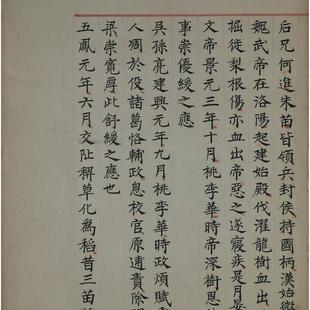 后兄何進朱苗皆領兵封侯持國柄漢始微
魏武帝在洛陽起建始殿伐濯龍樹血出
掘徙梨根傷亦血出帝惡之遂寢疾是月
文帝景元三年十月桃李華時帝深樹恩
事崇優緩之應
吳孫亮建興元年九月桃李華時政煩賦
人凋於役諸葛恪輔政息校官原逋責除
梁崇寬厚此舒緩之應也
五鳳元年六月交阯稗草化為稻昔三苗